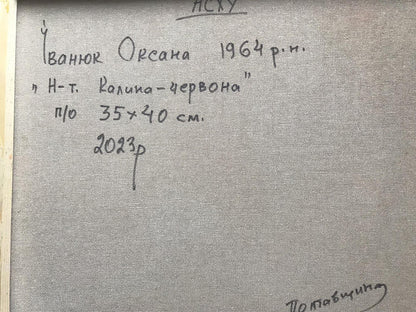 НСХУ
Іванюк Оксана 1964 р.н.
„ Н-т. Калина-червона"
п/о 35×40 см.
2023р
Полтавщина